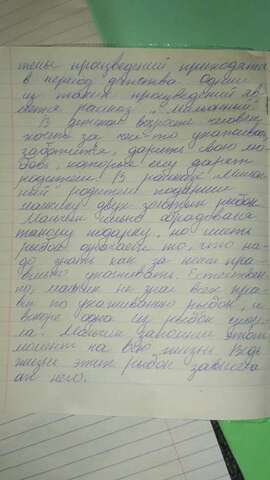 темы произведений приходятся
в период детства. Одним
из таких произведений яв-
ляется рассказ "Мальчики".
В детском возрасте человеку
хочется за кем-то ухаживать,
заботиться, дарить свою лю-
бовь, которую ему дарят
родители. В рассказе
родители подарили
мальчику двух золотых рыбок.
Мальчик обрадовался
такому подарку, но иметь
рыбок означает то, что на-
до знать как за ними пра-
вильно ухаживать. Естествен-
но, мальчик не знал всех пра-
вил по ухаживанию рыбок, и
вскоре одна из рыбок
ла. Мальчик запомнил этот
момент на всю жизнь. Ведь
жизнь этих рыбок зависела
от него.